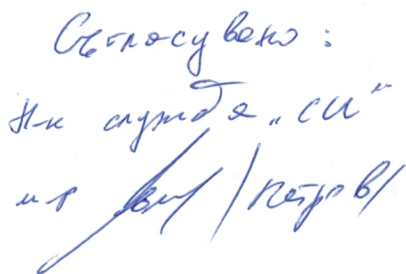 Съгласувано:
Н-к служба „СИ“
м-р /Петров/